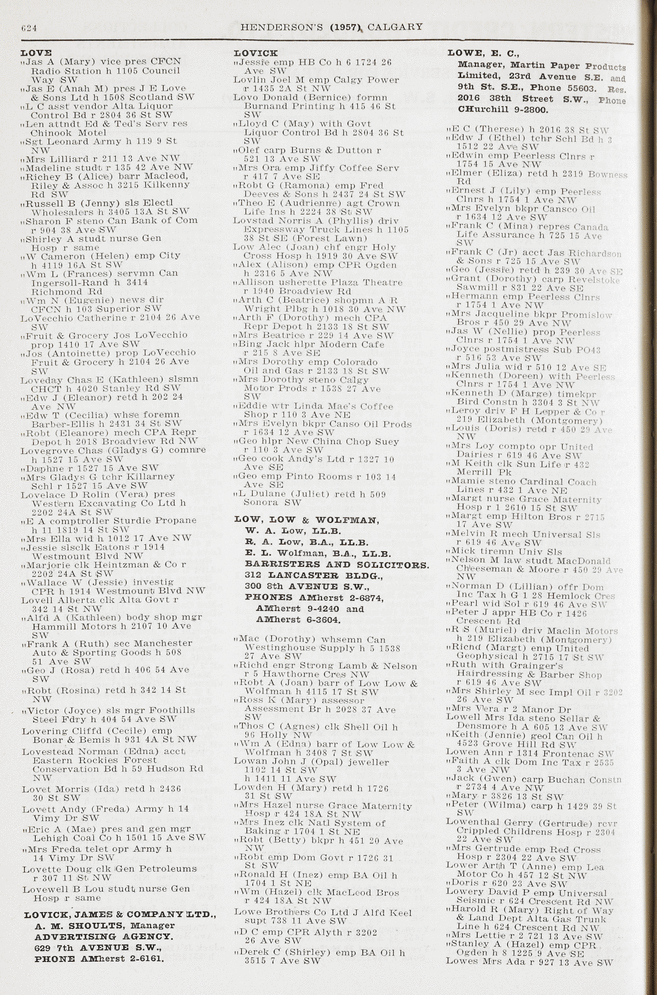 624
HENDERSON'S (1957) CALGARY
LOVE
„Jas A (Mary) vice pres CFCN
Radio Station h 1105 Council
Way SW
„Jas E (Anah M) pres J E Love
& Sons Ltd h 1508 Scotland SW
„L C asst vendor Alta Liquor
Control Bd r 2804 36 St SW
„Len attndt Ed & Ted's Serv res
Chinook Motel
„Sgt Leonard Army h 119 9 St
NW
„Mrs Lilliard r 211 13 Ave NW
„Madeline studt r 135 42 Ave NW
„Richey B (Alice) barr Macleod,
Riley & Assoc h 3215 Kilkenny
Rd SW
„Russell B (Jenny) sls Electl
Wholesalers h 3405 13A St SW
„Sharon F steno Can Bank of Com
r 904 38 Ave SW
„Shirley A studt nurse Gen
Hosp r same
„W Cameron (Helen) emp City
h 4119 16A St SW
„Wm L (Frances) servmn Can
Ingersoll-Rand h 3414
Richmond Rd
„Wm N (Eugenie) news dir
CFCN h 103 Superior SW
LoVecchio Catherine r 2104 26 Ave
SW
„Fruit & Grocery Jos LoVecchio
prop 1410 17 Ave SW
„Jos (Antoinette) prop LoVecchio
Fruit & Grocery h 2104 26 Ave
SW
Loveday Chas E (Kathleen) slsmn
CHCT h 4020 Stanley Rd SW
„Edw J (Eleanor) retd h 202 24
Ave NW
„Edw T (Cecilia) whse foremn
Barber-Ellis h 2431 34 St SW
„Robt (Eleanore) mech CPA Repr
Depot h 2018 Broadview Rd NW
Lovegrove Chas (Gladys G) comnre
h 1527 15 Ave SW
„Daphne r 1527 15 Ave SW
„Mrs Gladys G tchr Killarney
Schl r 1527 15 Ave SW
Lovelace D Rolin (Vera) pres
Western Excavating Co Ltd h
2202 24A St SW
„E A comptroller Sturdie Propane
h 11 1819 14 St SW
„Mrs Ella wid h 1012 17 Ave NW
„Jessie slsclk Eatons r 1914
Westmount Blvd NW
„Marjorie clk Heintzman & Co r
2202 24A St SW
„Wallace W (Jessie) investig
CPR h 1914 Westmount Blvd NW
Lovell Alberta clk Alta Govt r
342 14 St NW
„Alfd A (Kathleen) body shop mgr
Hammill Motors h 2107 10 Ave
SW
„Frank A (Ruth) sec Manchester
Auto & Sporting Goods h 508
51 Ave SW
„Geo J (Rosa) retd h 406 54 Ave
SW
„Robt (Rosina) retd h 342 14 St
NW
„Victor (Joyce) sls mgr Foothills
Steel Fdry h 404 54 Ave SW
Lovering Cliffd (Cecile) emp
Bonar & Bemis h 931 4A St NW
Lovestead Norman (Edna) acct
Eastern Rockies Forest
Conservation Bd h 59 Hudson Rd
NW
Lovet Morris (Ida) retd h 2436
30 St SW
Lovett Andy (Freda) Army h 14
Vimy Dr SW
„Eric A (Mae) pres and gen mgr
Lehigh Coal Co h 1501 15 Ave SW
„Mrs Freda telet opr Army h
14 Vimy Dr SW
Lovette Doug clk Gen Petroleums
r 307 11 St NW
Lovewell B Lou studt nurse Gen
Hosp r same
LOVICK, JAMES & COMPANY LTD.,
A. M. SHOULTS, Manager
ADVERTISING AGENCY.
629 7th AVENUE S.W.,
PHONE AMherst 2-6161.
LOVICK
„Jessie emp HB Co h 6 1724 26
Ave SW
Lovlin Joel M emp Calgy Power
r 1435 2A St NW
Lovo Donald (Bernice) formn
Burnand Printing h 415 46 St
SW
„Lloyd C (May) with Govt
Liquor Control Bd h 2804 36 St
SW
„Olef carp Burns & Dutton r
521 13 Ave SW
„Mrs Ora emp Jiffy Coffee Serv
r 417 7 Ave SE
„Robt G (Ramona) emp Fred
Deeves & Sons h 2437 24 St SW
„Theo E (Audrienne) agt Crown
Life Ins h 2224 38 St SW
Lovstad Norris A (Phyllis) driv
Expressway Truck Lines h 1105
38 St SE (Forest Lawn)
Low Alec (Joan) chf engr Holy
Cross Hosp h 1919 30 Ave SW
„Alex (Alison) emp CPR Ogden
h 2316 5 Ave NW
„Allison usherette Plaza Theatre
r 1940 Broadview Rd
„Arth C (Beatrice) shopmn A R
Wright Plbg h 1018 30 Ave NW
„Arth F (Dorothy) mech CPA
Repr Depot h 2133 18 St SW
„Mrs Beatrice r 229 14 Ave SW
„Bing Jack hlpr Modern Cafe
r 215 8 Ave SE
„Mrs Dorothy emp Colorado
Oil and Gas r 2133 18 St SW
„Mrs Dorothy steno Calgy
Motor Prods r 1538 27 Ave
SW
„Eddie wtr Linda Mae's Coffee
Shop r 110 3 Ave NE
„Mrs Evelyn bkpr Canso Oil Prods
r 1634 12 Ave SW
„Geo hlpr New China Chop Suey
r 110 3 Ave SW
„Geo cook Andy's Ltd r 1327 10
Ave SE
„Geo emp Pinto Rooms r 103 14
Ave SE
„L Dulane (Juliet) retd h 509
Sonora SW
LOW, LOW & WOLFMAN,
W. A. Low, LL.B.
R. A. Low, B.A., LL.B.
E. L. Wolfman, B.A., LL.B.
BARRISTERS AND SOLICITORS.
312 LANCASTER BLDG.,
300 8th AVENUE S.W.,
PHONES AMherst 2-6874,
AMherst 9-4240 and
AMherst 6-3604.
„Mac (Dorothy) whsemn Can
Westinghouse Supply h 5 1538
27 Ave SW
„Richd engr Strong Lamb & Nelson
r 5 Hawthorne Cres NW
„Robt A (Joan) bar of Low Low &
Wolfman h 4115 17 St SW
„Ross K (Mary) assessor
Assessment Br h 2028 37 Ave
SW
„Thos C (Agnes) clk Shell Oil h
96 Holly NW
„Wm A (Edna) barr of Low Low &
Wolfman h 3408 7 St SW
Lowan John J (Opal) jeweller
1102 14 St SW
h 1411 11 Ave SW
Lowden H (Mary) retd h 1726
31 St SW
„Mrs Hazel nurse Grace Maternity
Hosp r 424 18A St NW
„Mrs Inez clk Natl System of
Baking r 1704 1 St NE
„Robt (Betty) bkpr h 451 20 Ave
NW
„Robt emp Dom Govt r 1726 31
St SW
„Ronald H (Inez) emp BA Oil h
1704 1 St NE
„Wm (Hazel) clk MacLeod Bros
r 424 18A St NW
Lowe Brothers Co Ltd J Alfd Keel
supt 738 11 Ave SW
„D C emp CPR Alyth r 3202
26 Ave SW
„Derek C (Shirley) emp BA Oil h
3515 7 Ave SW
LOWE, E. C.,
Manager, Martin Paper Products
Limited, 23rd Avenue S.E. and
9th St. S.E., Phone 55603. Res.
2016 38th Street S.W., Phone
CHurchill 9-2800.
„E C (Therese) h 2016 38 St SW
„Edw J (Ethel) tchr Schl Bd h 3
1512 22 Ave SW
„Edwin emp Peerless Clnrs r
1754 15 Ave NW
„Elmer (Eliza) retd h 2319 Bowness
Rd
„Ernest J (Lily) emp Peerless
Clnrs h 1754 1 Ave NW
„Mrs Evelyn bkpr Cansco Oil
r 1634 12 Ave SW
„Frank C (Mina) repres Canada
Life Assurance h 725 15 Ave
SW
„Frank C (Jr) acct Jas Richardson
& Sons r 725 15 Ave SW
„Geo (Jessie) retd h 239 30 Ave SE
„Grant (Dorothy) carp Revelstoke
Sawmill r 831 22 Ave SE
„Hermann emp Peerless Clnrs
r 1754 1 Ave NW
„Mrs Jacqueline bkpr Promislow
Bros r 450 29 Ave NW
„Jas W (Nellie) prop Peerless
Clnrs r 1754 1 Ave NW
„Joyce postmistress Sub PO43
r 516 53 Ave SW
„Mrs Julia wid r 510 12 Ave SE
„Kenneth (Doreen) with Peerless
Clnrs r 1754 1 Ave NW
„Kenneth D (Marge) timekpr
Bird Constn h 3304 3 St NW
„Leroy driv F H Lepper & Co r
219 Elizabeth (Montgomery)
„Louis (Doris) retd r 450 29 Ave
NW
„Mrs Loy compto opr United
Dairies r 619 46 Ave SW
„M Keith clk Sun Life r 432
Merrill Pk
„Mamie steno Cardinal Coach
Lines r 432 1 Ave NE
„Margt nurse Grace Maternity
Hosp r 1 2610 15 St SW
„Margt emp Hilton Bros r 2715
17 Ave SW
„Melvin R mech Universal Sls
r 619 46 Ave SW
„Mick tiremn Univ Sls
„Nelson M law studt MacDonald
Cheeseman & Moore r 450 29 Ave
NW
„Norman D (Lillian) offr Dom
Inc Tax h G 1 28 Hemlock Cres
„Pearl wid Sol r 619 46 Ave SW
„Peter J appr HB Co r 1426
Crescent Rd
„R S (Muriel) driv Maclin Motors
h 219 Elizabeth (Montgomery)
„Richd (Margt) emp United
Geophysical h 2715 17 St SW
„Ruth with Grainger's
Hairdressing & Barber Shop
r 619 46 Ave SW
„Mrs Shirley M sec Impl Oil r 3202
26 Ave SW
„Mrs Vera r 2 Manor Dr
Lowell Mrs Ida steno Sellar &
Densmore h A 605 13 Ave SW
„Keith (Jennie) geol Can Oil h
4523 Grove Hill Rd SW
Lowen Ann r 1314 Frontenac SW
„Faith A clk Dom Inc Tax r 2535
3 Ave NW
„Jack (Gwen) carp Buchan Constn
r 2734 4 Ave NW
„Mary r 3826 13 St SW
„Peter (Wilma) carp h 1429 39 St
SW
Lowenthal Gerry (Gertrude) recvr
Crippled Childrens Hosp r 2304
22 Ave SW
„Mrs Gertrude emp Red Cross
Hosp r 2304 22 Ave SW
Lower Arth T (Anne) emp Lea
Motor Co h 457 12 St NW
„Doris r 620 23 Ave SW
Lowery David P emp Universal
Seismic r 624 Crescent Rd NW
„Harold R (Mary) Right of Way
& Land Dept Alta Gas Trunk
Line h 624 Crescent Rd NW
„Mrs Lettie r 2 721 13 Ave SW
„Stanley A (Hazel) emp CPR
Ogden h 8 1225 9 Ave SE
Lowes Mrs Ada r 927 13 Ave SW